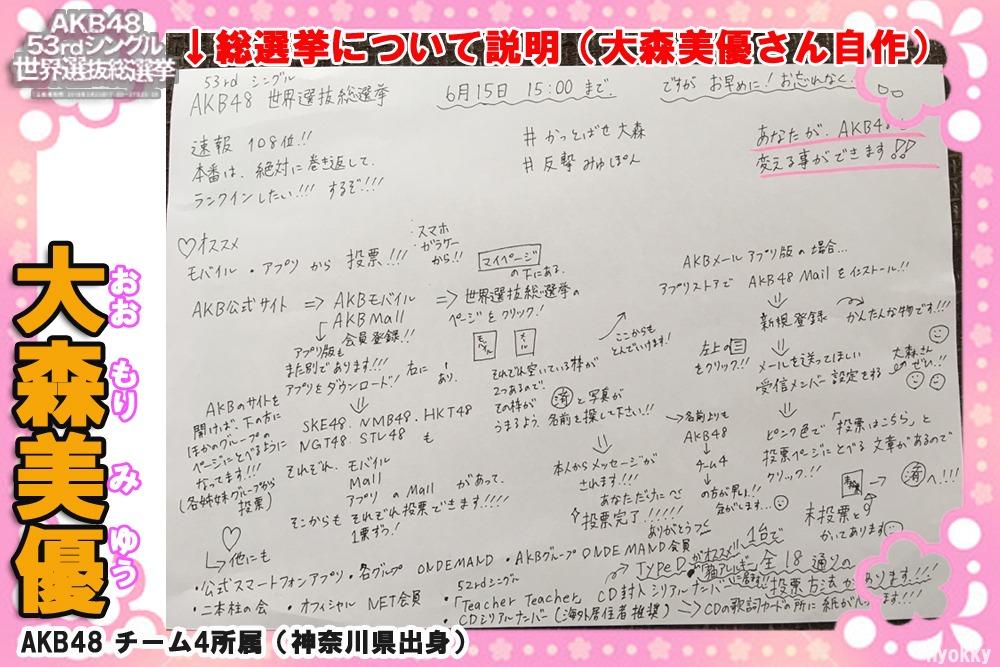 AKB48
53rdシングル
世界選抜総選挙
↓総選挙について説明（大森美優さん自作）
53rd シングル
AKB48 世界選抜総選挙
6月15日 15:00 まで
ですが お早めに！お忘れなく
速報 108位!!
本番は、絶対に巻き返して、
ランクインしたい!!! するぞ!!!
# かっとばせ大森
# 反撃みゅぽん
あなたが、AKB48
変える事ができます!!
♡オススメ
モバイル・アプリから 投票!!!
スマホ
ガラケー
から!!
マイページ
の下にある、
AKB公式サイト ⇒ AKBモバイル ⇒ 世界選抜総選挙の
ページをクリック！
AKB Mail
会員登録!!
アプリ版も
また別であります!!!
アプリをダウンロード！
ここからも
とんでいけます！
それぞれ空いている枠が
2つあるので、
その枠が 済 と写真が
うまるよう、名前を探して下さい!!
AKBのサイトを
開けば、下の方に
ほかのグループの
ページにとべるように
なってます!!!
(各姉妹グループなら
投票)
SKE48、NMB48、HKT48
NGT48、STU48 も
それぞれ、モバイル
Mail
アプリのMail があって、
そこからも それぞれ投票できます!!!!
1票ずつ！
本人からメッセージが
されます!!!
あなただけに
投票完了!!!!!
ありがとうっ
名前よりも
AKB48
チーム4
の方が早い！
気がします…
AKBメールアプリ版の場合...
アプリストアで AKB48 Mail をインストール!!
新規登録 かんたんな物です!!!
左上の
をクリック!!
メールを送ってほしい
受信メンバー設定をする
大森さん
のぜひ!!
ピンク色で「投票はこちら」と
投票ページにとべる文章があるので
クリック!!
済 へ!!!
未投票と
かいてあります
♡
→他にも
・公式スマートフォンアプリ ・各グループ ONDEMAND ・AKBグループ ONDEMAND会員
・二本柱の会 ・オフィシャル NET会員
52ndシングル
・「Teacher Teacher」CD封入シリアルナンバー
・CDシリアルナンバー(海外居住者推奨)
TypeDがオススメ!!!
1台で
全18通りの
投票方法があります!!!
→CDの歌詞カードの所に紙が入ってます!!!
大森美優
おお もり み ゆう
AKB48 チーム4所属（神奈川県出身）